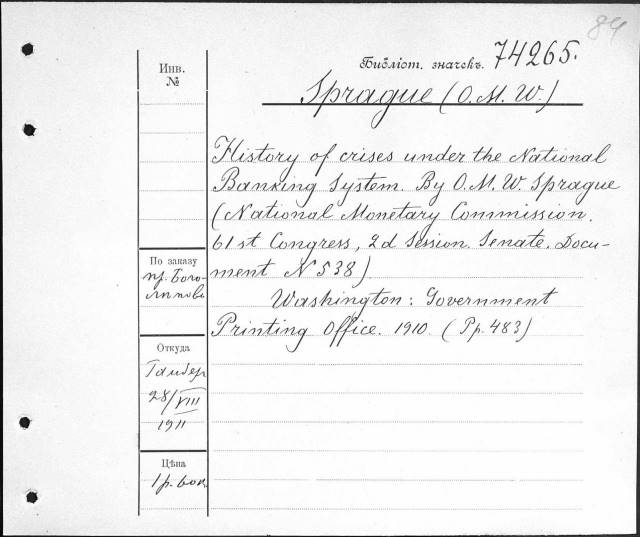 84
Библіот. значекъ. 74265.
Инв.
№
Sprague (O. M. W.)
History of crises under the National
Banking System. By O. M. W. Sprague
(National Monetary Commission.
61 st Congress, 2d Session. Senate. Docu-
ment N 538)
Washington: Government
Printing Office. 1910. (Pp. 483)
По заказу
пр. Бого-
лѣпова
Откуда
28/VIII
1911
Цѣна
1 р.